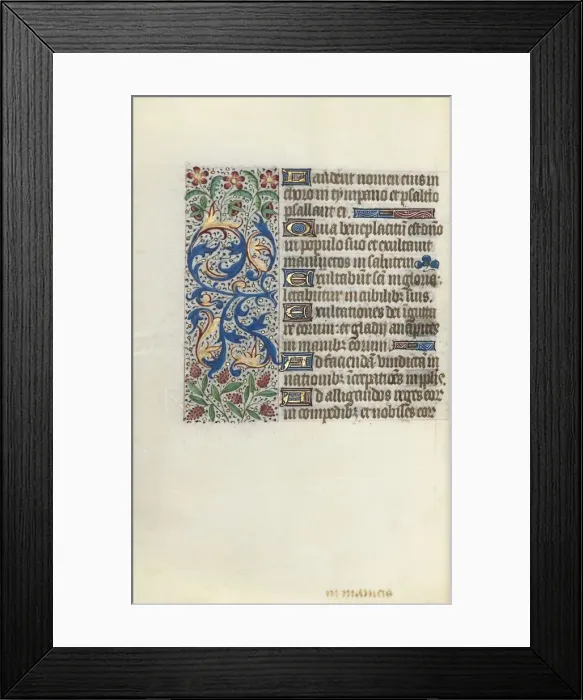 Laudent nomen eius in
choro in tympano et psalterio
psallant ei.
Quia beneplacitū est dño
in populo suo et exultauit
mansuetos in salutem
Exultabūt sc̄i in gloria:
letabūtur in cubilib; suis.
Exultationes dei ī guttu
re eorum: et gladij ancipites
in manib; eorum.
Ad faciendā vindictā in
nationib; īcrepationes in ppl'is.
Ad alligandos reges eor
in compedib; et nobiles eor
in manicis